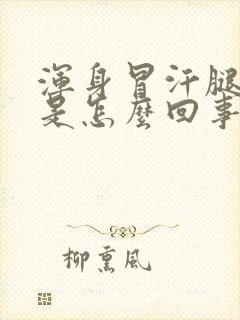 渾身冒汗腿
是怎麼回事
柳熏風